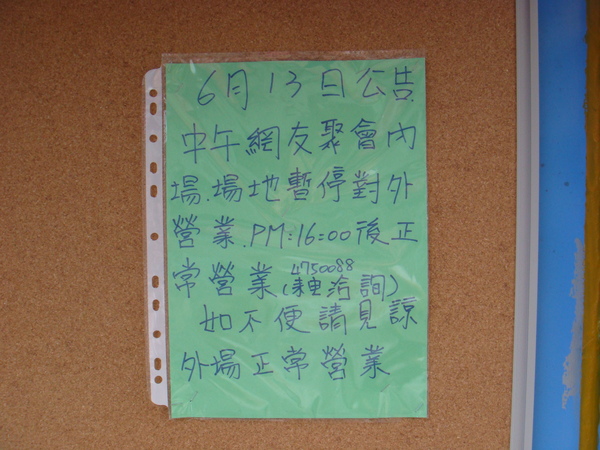 6月13日公告
中午網友聚會內
場.場地暫停對外
營業.PM:16:00後正
常營業(來電洽詢)
4750088
如不便請見諒
外場正常營業